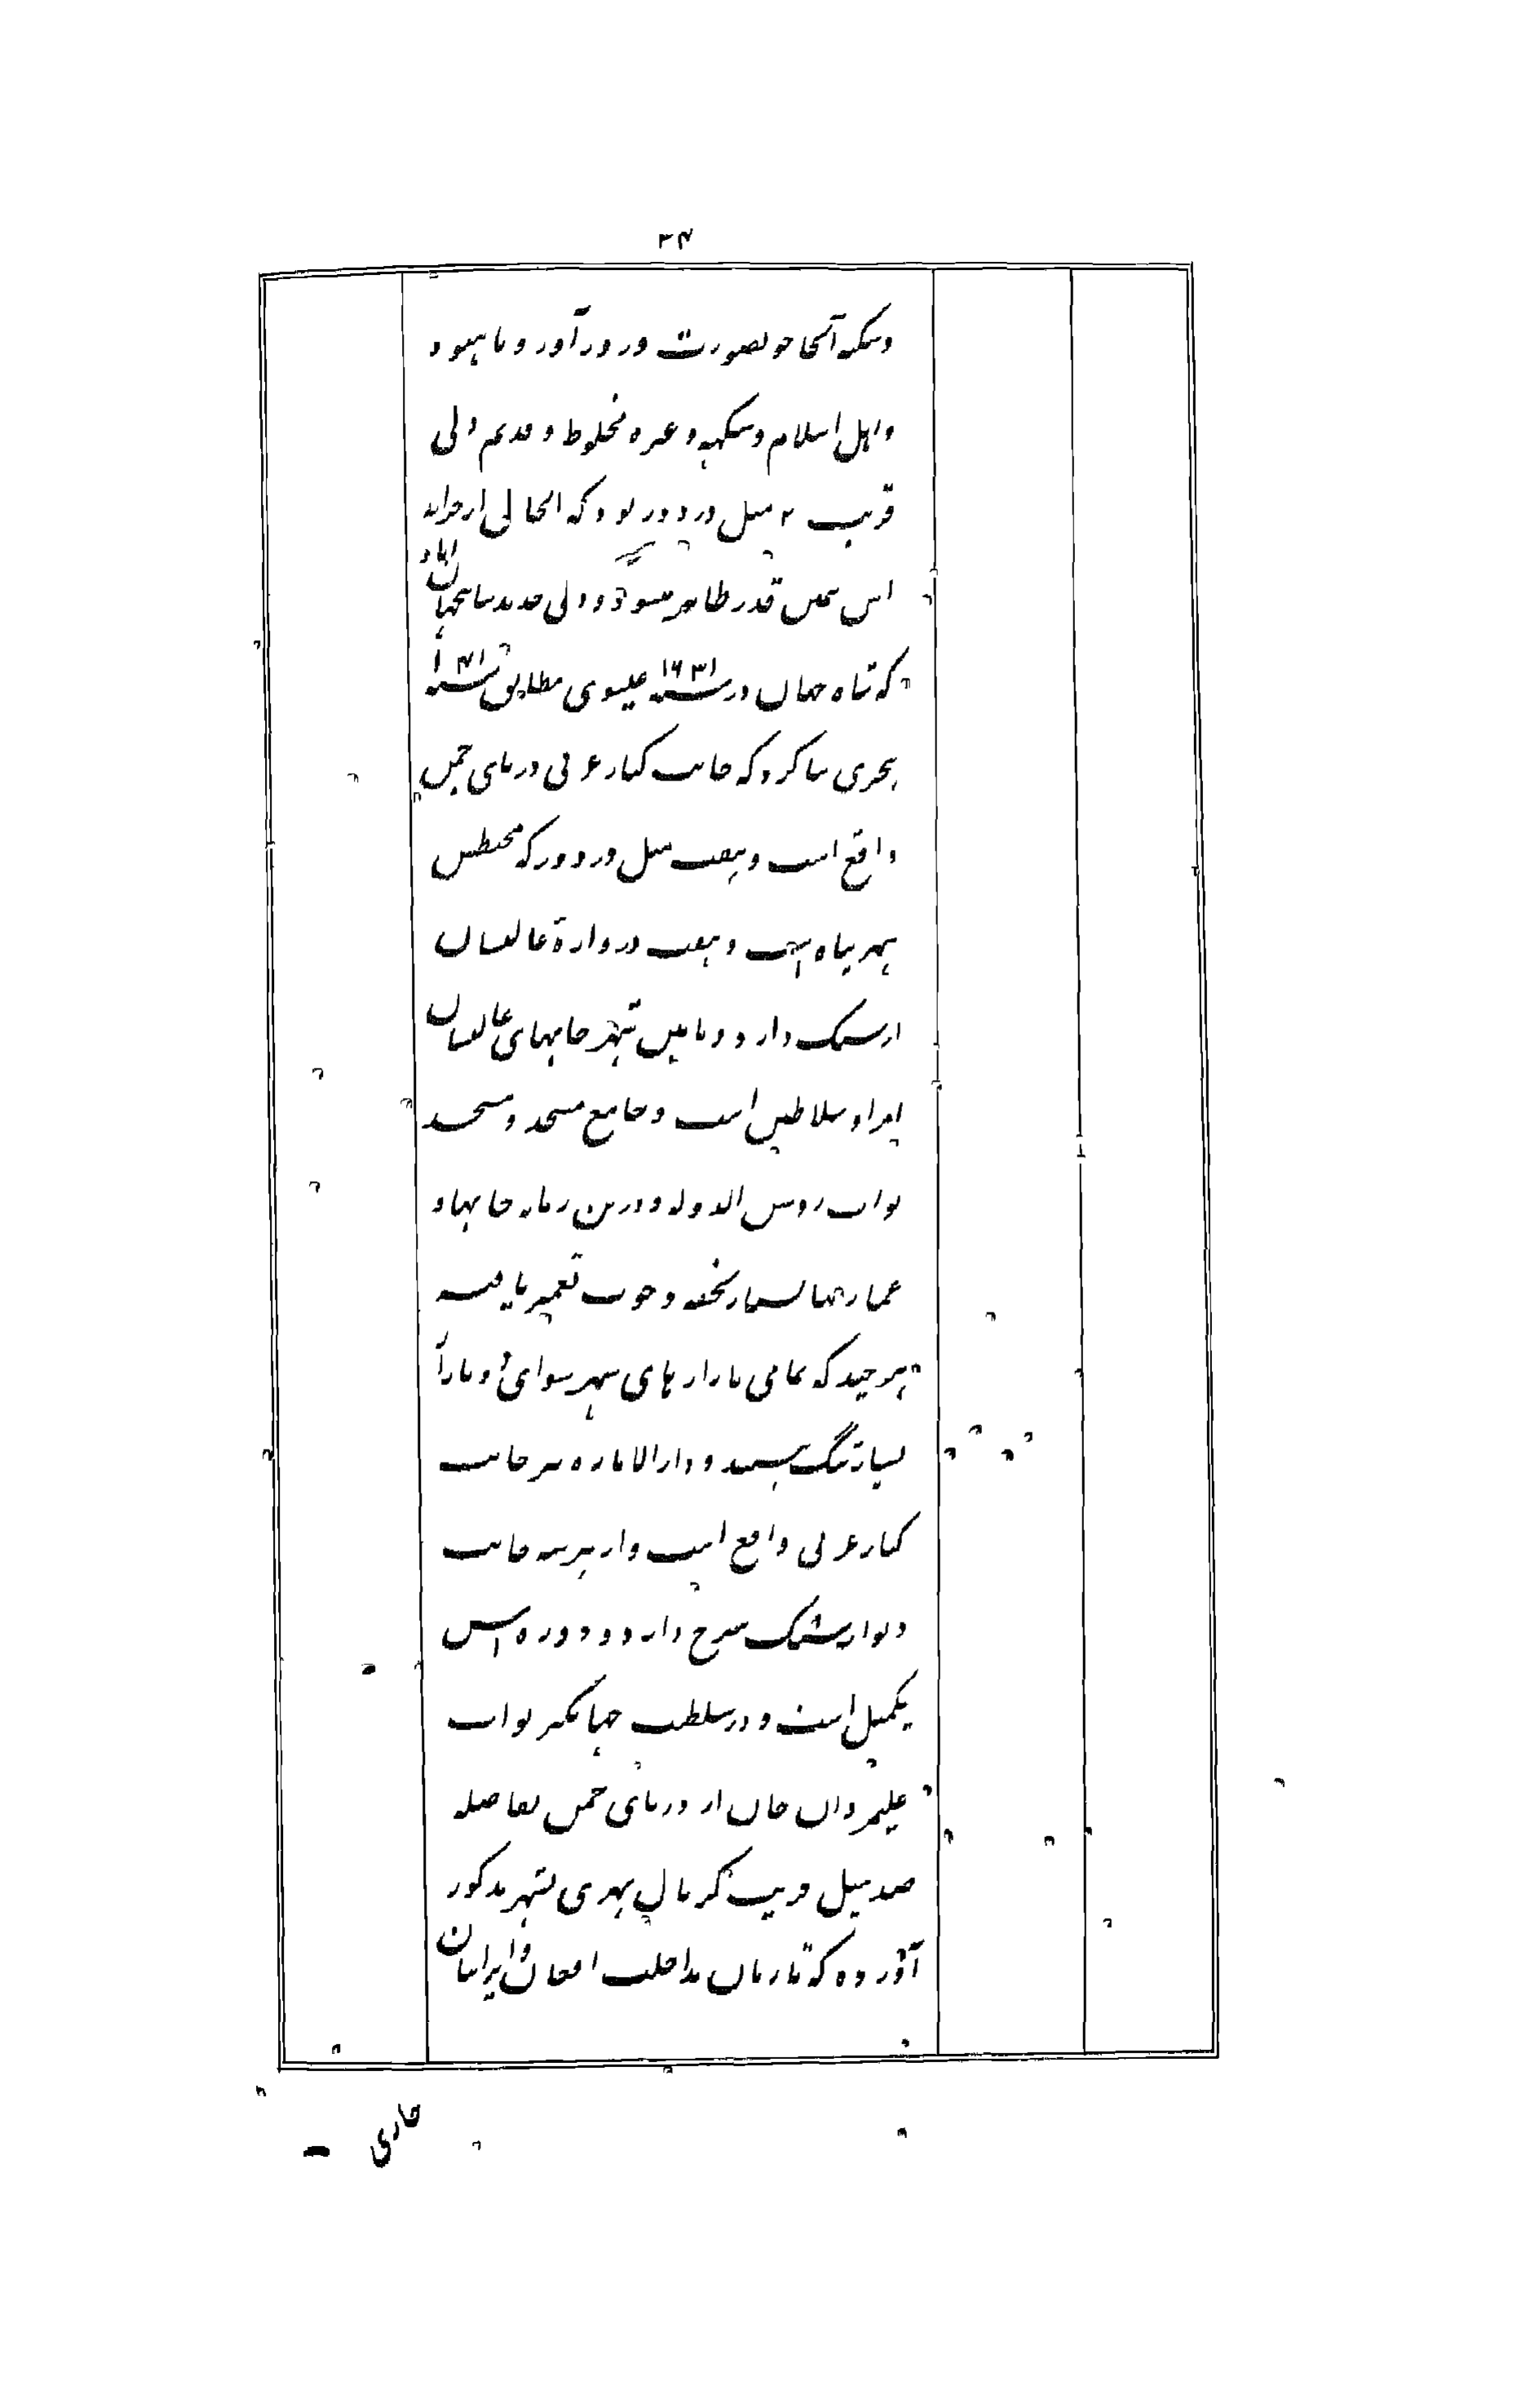 ۳۴
وسکنه آنجا خوبصورت و زورآور و با هنود
و اهل اسلام و سکهه وغیره مخلوط و قدیم دلی
قریب ۲ میل در دور بود که الحال از خرابه
اش همین قدر ظاهر میشود و دلی جدید شاهجهان اباد
که شاه جهان در سنه ۱۶۳۱ عیسوی مطابق سنه ۱۰۴۱
هجری بنا کرد که جانب کنار غربی دریای جمن
واقع است و هفت میل در دور که محیطش
شهر پناه است و هفت دروازهٔ عالیشان
از سنگ دارد و مابین شهر خانهای عالیشان
امرا و سلاطین است و جامع مسجد و مسجد
نواب روشن الدوله و درین زمانه خانها و
عمارتها بسیار پخته و خوب تعمیر یافته
هر چند که تمامی بازارهای شهر سوای دو بازار
بسیار تنگ هستند و دارالاماره هر جانب
کنار غربی واقع است و از هر سه جانب
دیوار سنگ سرخ دارد و دوره اش
یکمیل است و در سلطنت جهانگیر نواب
علیمردان خان از دریای جمن بفاصله
صد میل قریب کرنال نهری بشهر مذکور
آورده که تا زمان مداخلت افغان و ایرانیان
جاری